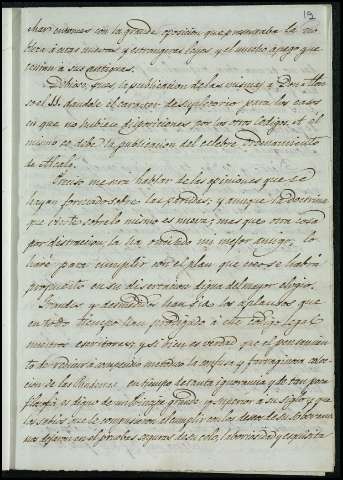 19
char entonces con la grande oposicion que mostraba la no
bleza á estas nuevas y estrangeras leyes y el mucho apego que
tenian á sus antiguas.
Debióse, pues, la publicacion de las mismas á Don Alon
so el 11. dandole el caracter de supletorio para los casos
en que no hubiese disposiciones por los otros Codigos, et el
mismo se debe la publicacion del celebre ordenamiento
de Alcalá.
Preciso me será hablar de las opiniones que se
hayan formado sobre las partidas; y aunque la doctrina
que vierte sobre lo mismo es nueva; mas que otra cosa
por distraccion, la ha omitido mi mejor amigo; lo
haré para cumplir con el plan que nos se habia
propuesto en su disertacion digna del mejor elogio.
Grandes y desmedidos han sido los aplausos que
en todo tiempo han prodigado á este codigo legal
nuestros escritores; y si bien es verdad que el pensamien
to de reducir á compendio metodico la confusa y farraginosa colec
cion de las en tiempo de tanta ignorancia y de tan poca
filosofia es digno de un Principe grande, y superior á su siglo y que
los sabios que le comprendieron al cumplir con los deseos de su Soberano
nos dejaron en él pruebas seguras de su celo, laboriosidad y esquisita